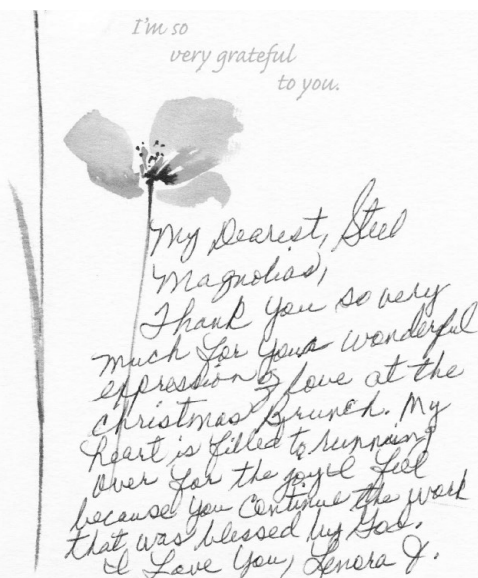 I'm so
very grateful
to you.
My Dearest, Steel
Magnolias,
Thank you so very
much for your wonderful
expression of love at the
Christmas Brunch. My
heart is filled to running
over for the joy I feel
because you continue the work
that was blessed by God.
I Love You, Lenora J.